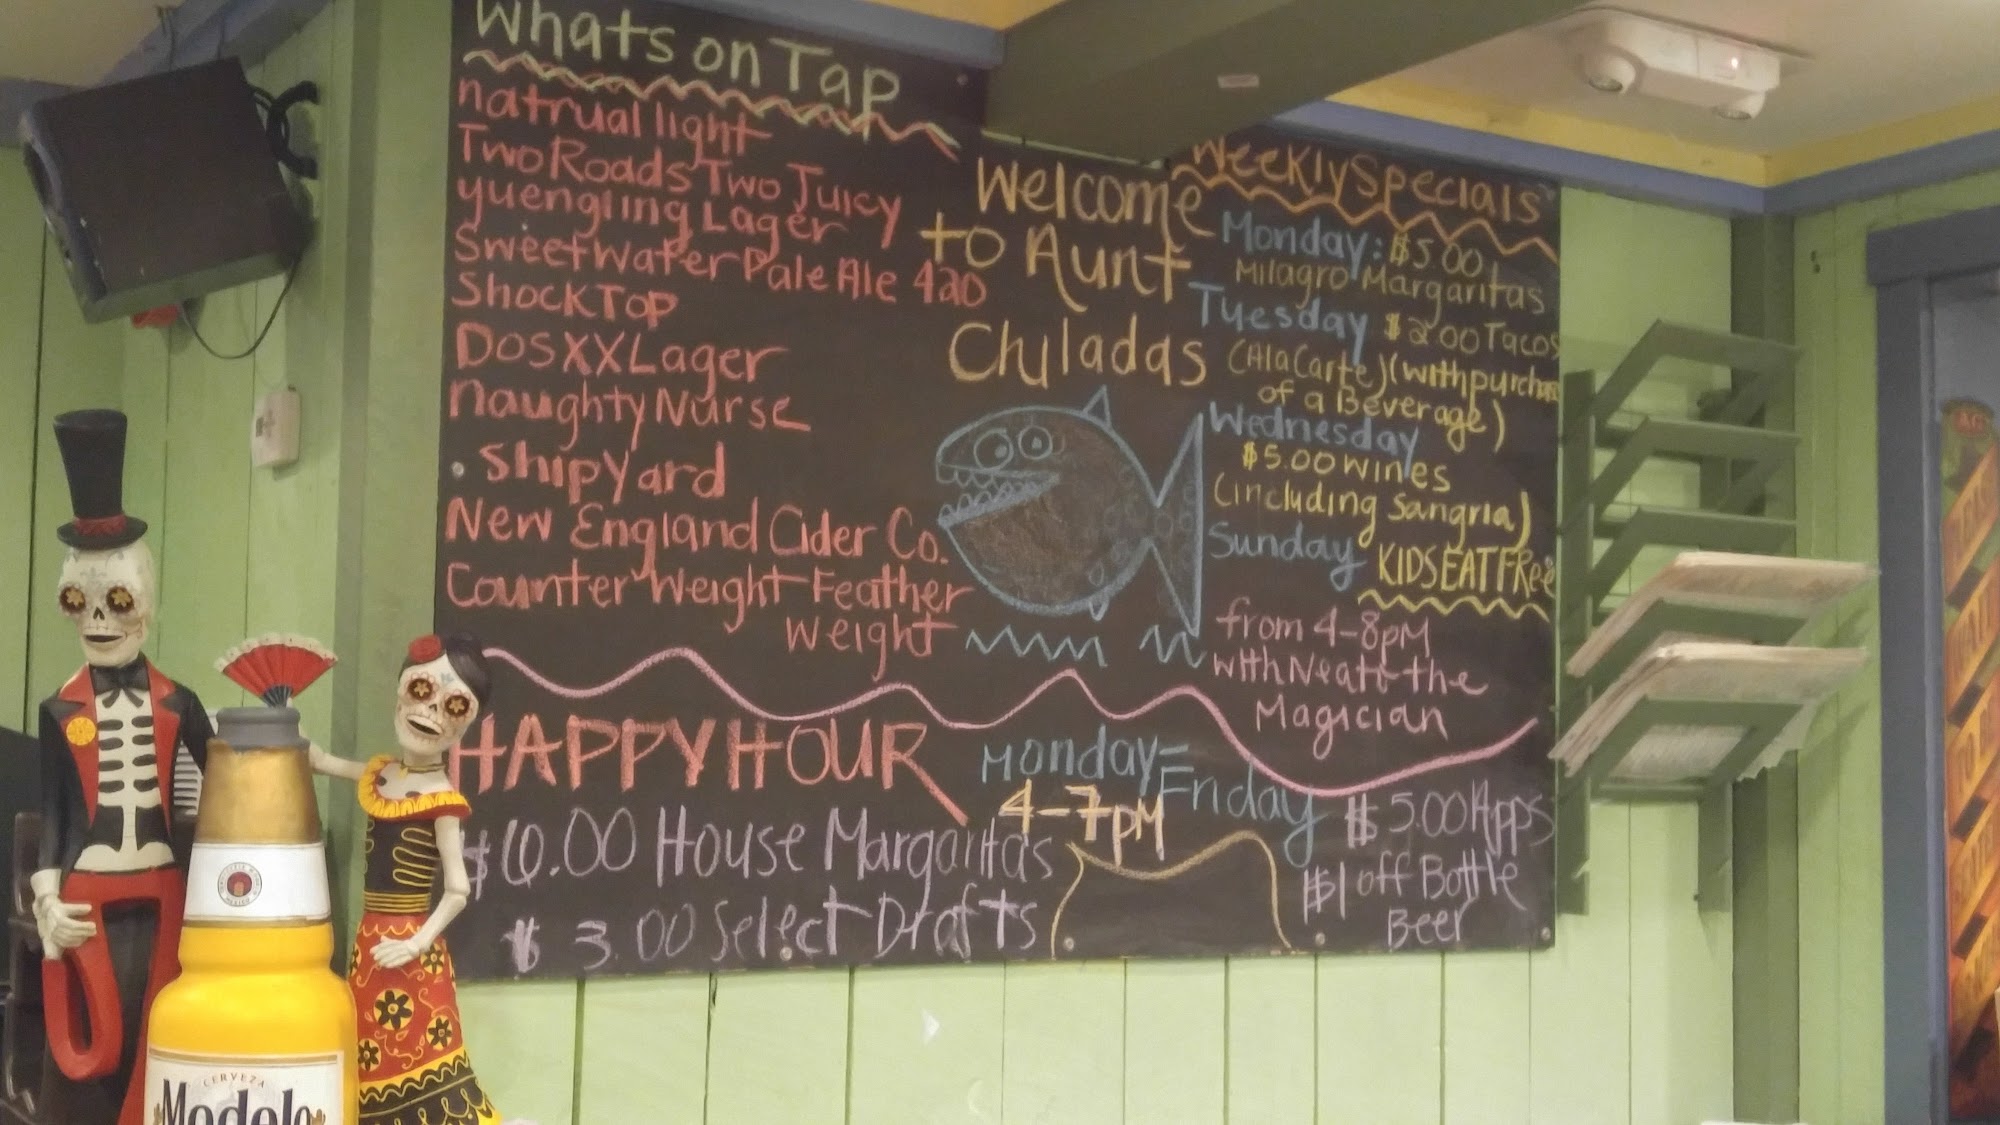 Whats on Tap
natrual light
Two Roads Two Juicy
yuengling Lager
Sweetwater Pale Ale 420
Shock Top
Dos XX Lager
naughty Nurse
Shipyard
New England Cider Co.
Counter Weight Feather
Weight
Welcome
to Aunt
Chiladas
Weekly Specials
Monday: $5.00
Milagro Margaritas
Tuesday $2.00 Tacos
(Ala Carte) (with purchase
of a Beverage)
Wednesday
$5.00 wines
(including Sangria)
Sunday KIDS EAT FRee
from 4-8pM
with Neatt the
Magician
HAPPY HOUR
Monday-
Friday
4-7pM
$6.00 House Margaritas
$3.00 Select Drafts
$5.00 Apps
$1 off Bottle
Beer
CERVEZA
Modelo